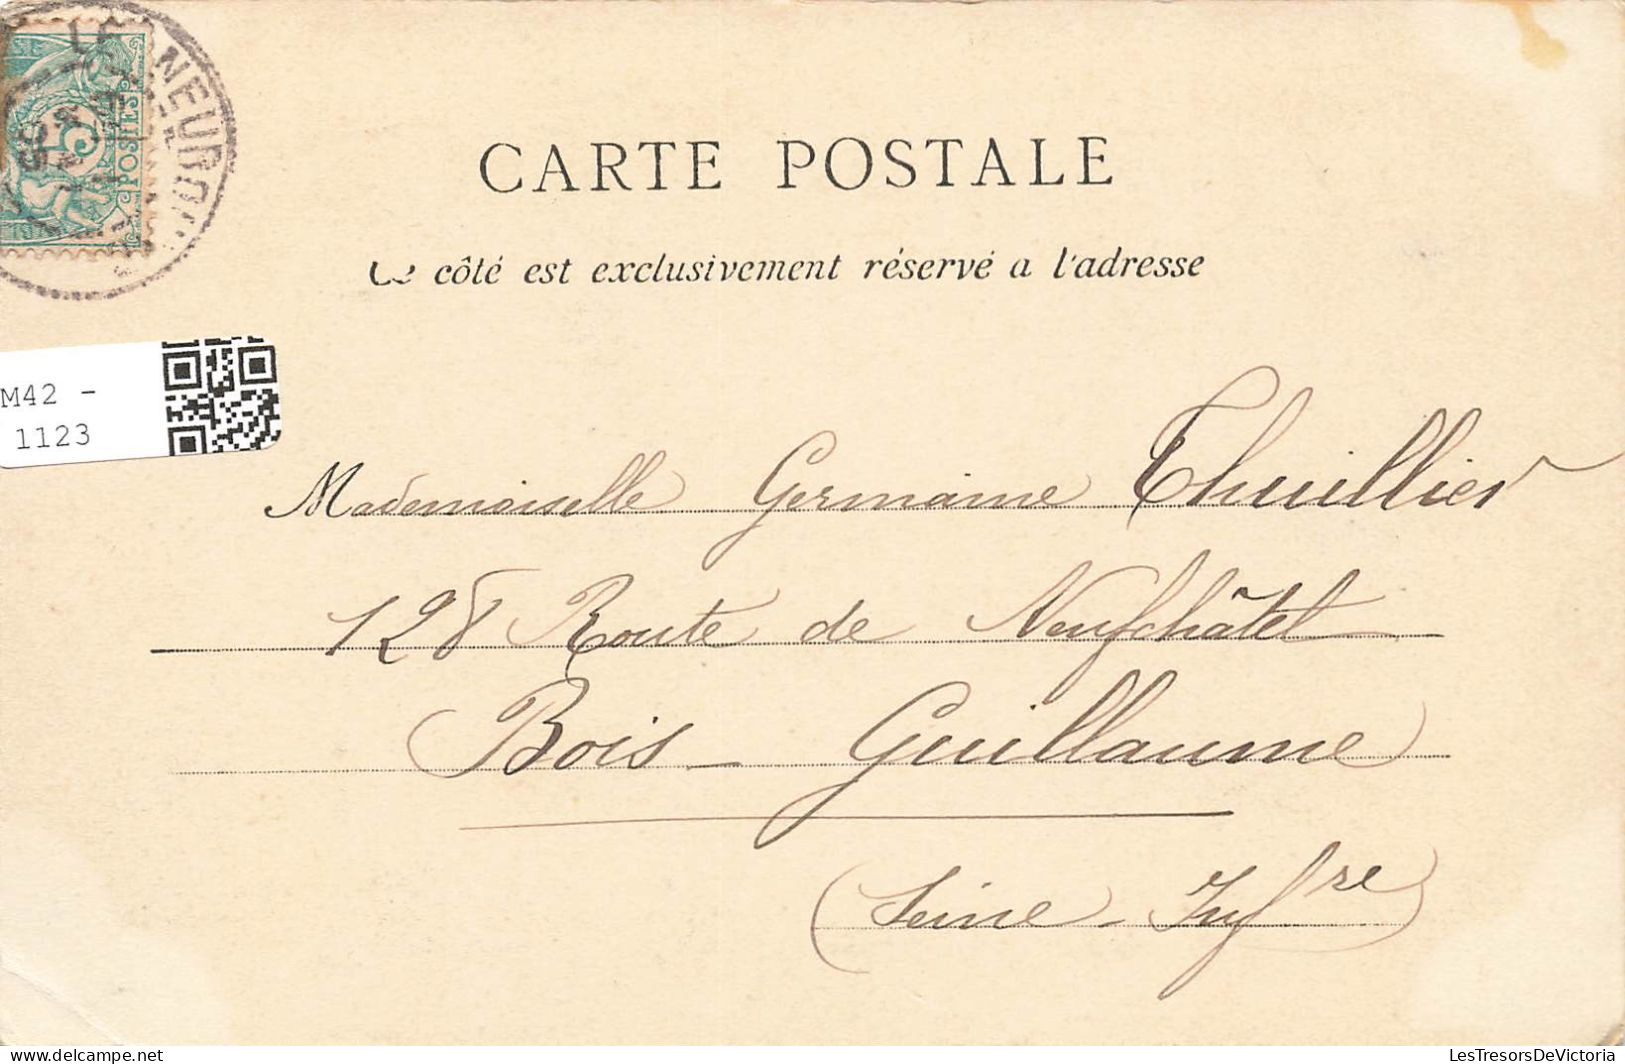 LE NEUBOURG
05
5
POSTES
CARTE POSTALE
Ce côté est exclusivement réservé a l'adresse
M42 -
1123
Mademoiselle Germaine Thuillier
128 Route de Neufchâtel
Bois-Guillaume
(Seine-Infre)
delcampe.net
LesTresorsDeVictoria